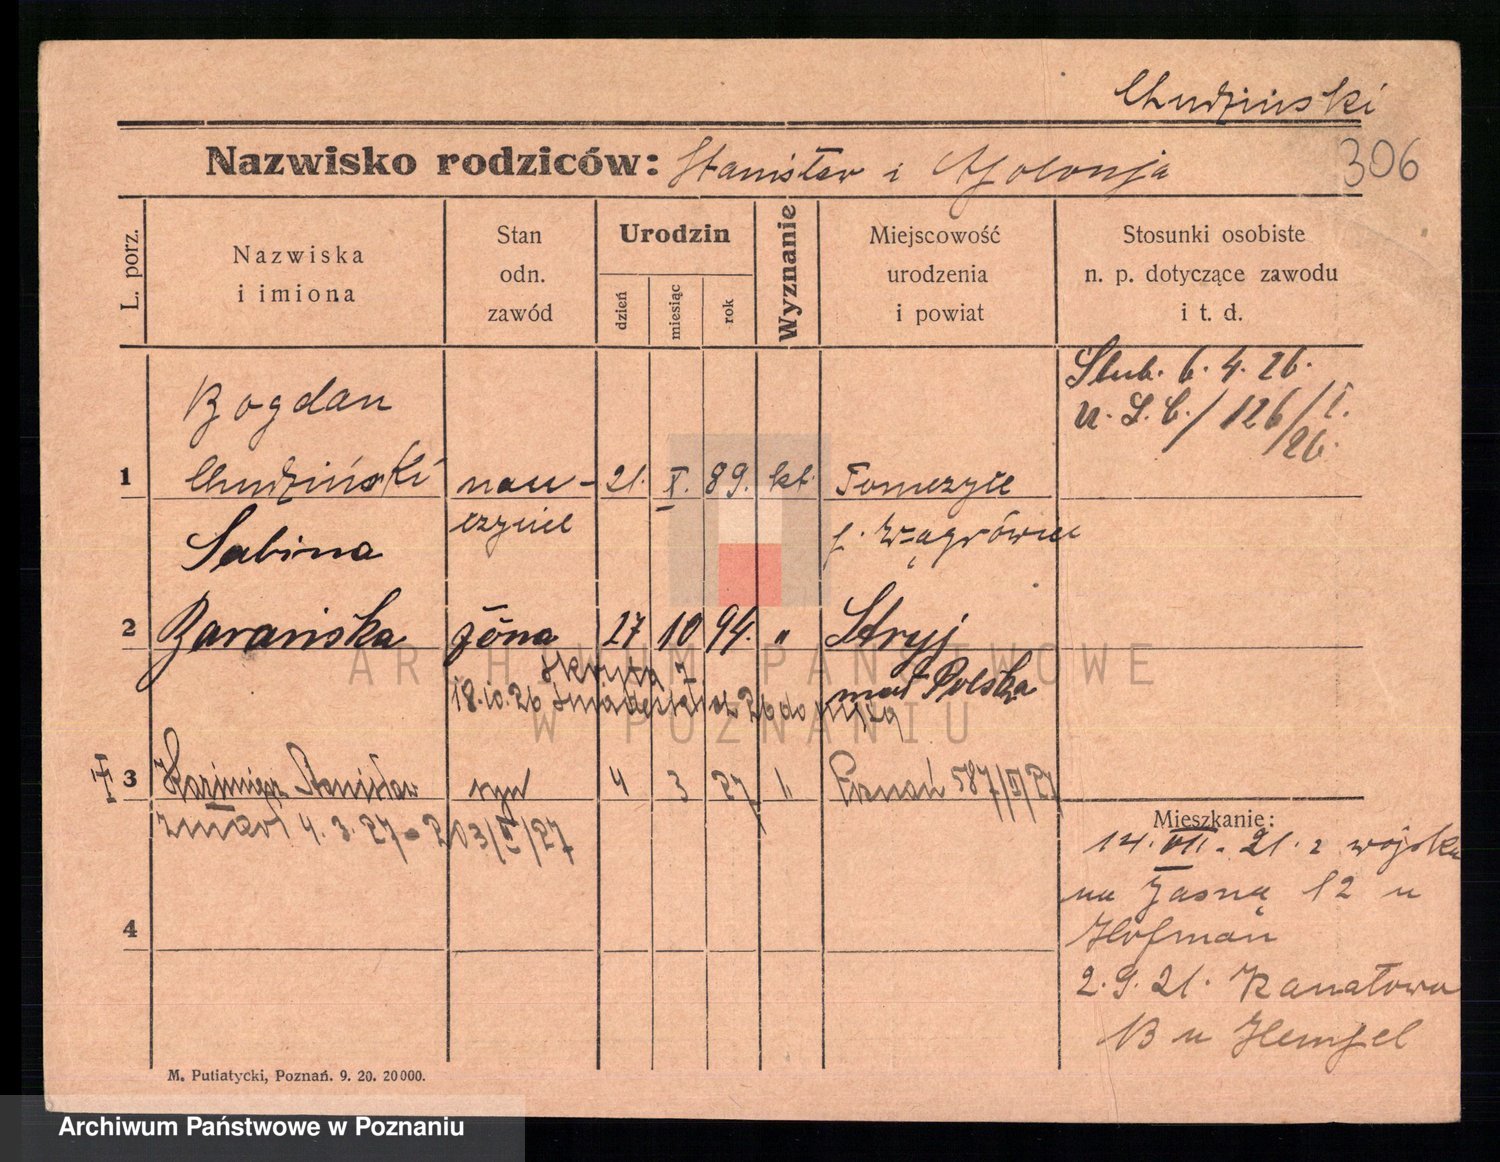 Chudziński
306
Nazwisko rodziców: Stanisław i Apolonja
L. porz.
Nazwiska i imiona
Stan odn. zawód
Urodzin
dzień
miesiąc
rok
Wyznanie
Miejscowość urodzenia i powiat
Stosunki osobiste n. p. dotyczące zawodu i t. d.
Ślub. 6. 4. 26.
U. S. C. / 126 / I. / 26.
Bogdan
1 Chudziński nau- 21. X. 89. kt.
czyciel p. Wągrówiec
Sabina
2 Barańska żona 27 10 94. " Stryj
mał Polska
18.10.26
3 Kazimierz Stanisław syn 4 3 27 " Poznań 587/II/27
zmarł 4. 3. 27 - 203/II/27
4
Mieszkanie:
14. VII. 21. z wojska
na Jasną 12 u
Hofman
2. 9. 21. Kanałowa
13 u Hempel
M. Putiatycki, Poznań. 9. 20. 20000.
ARCHIWUM PAŃSTWOWE
W POZNANIU
Archiwum Państwowe w Poznaniu